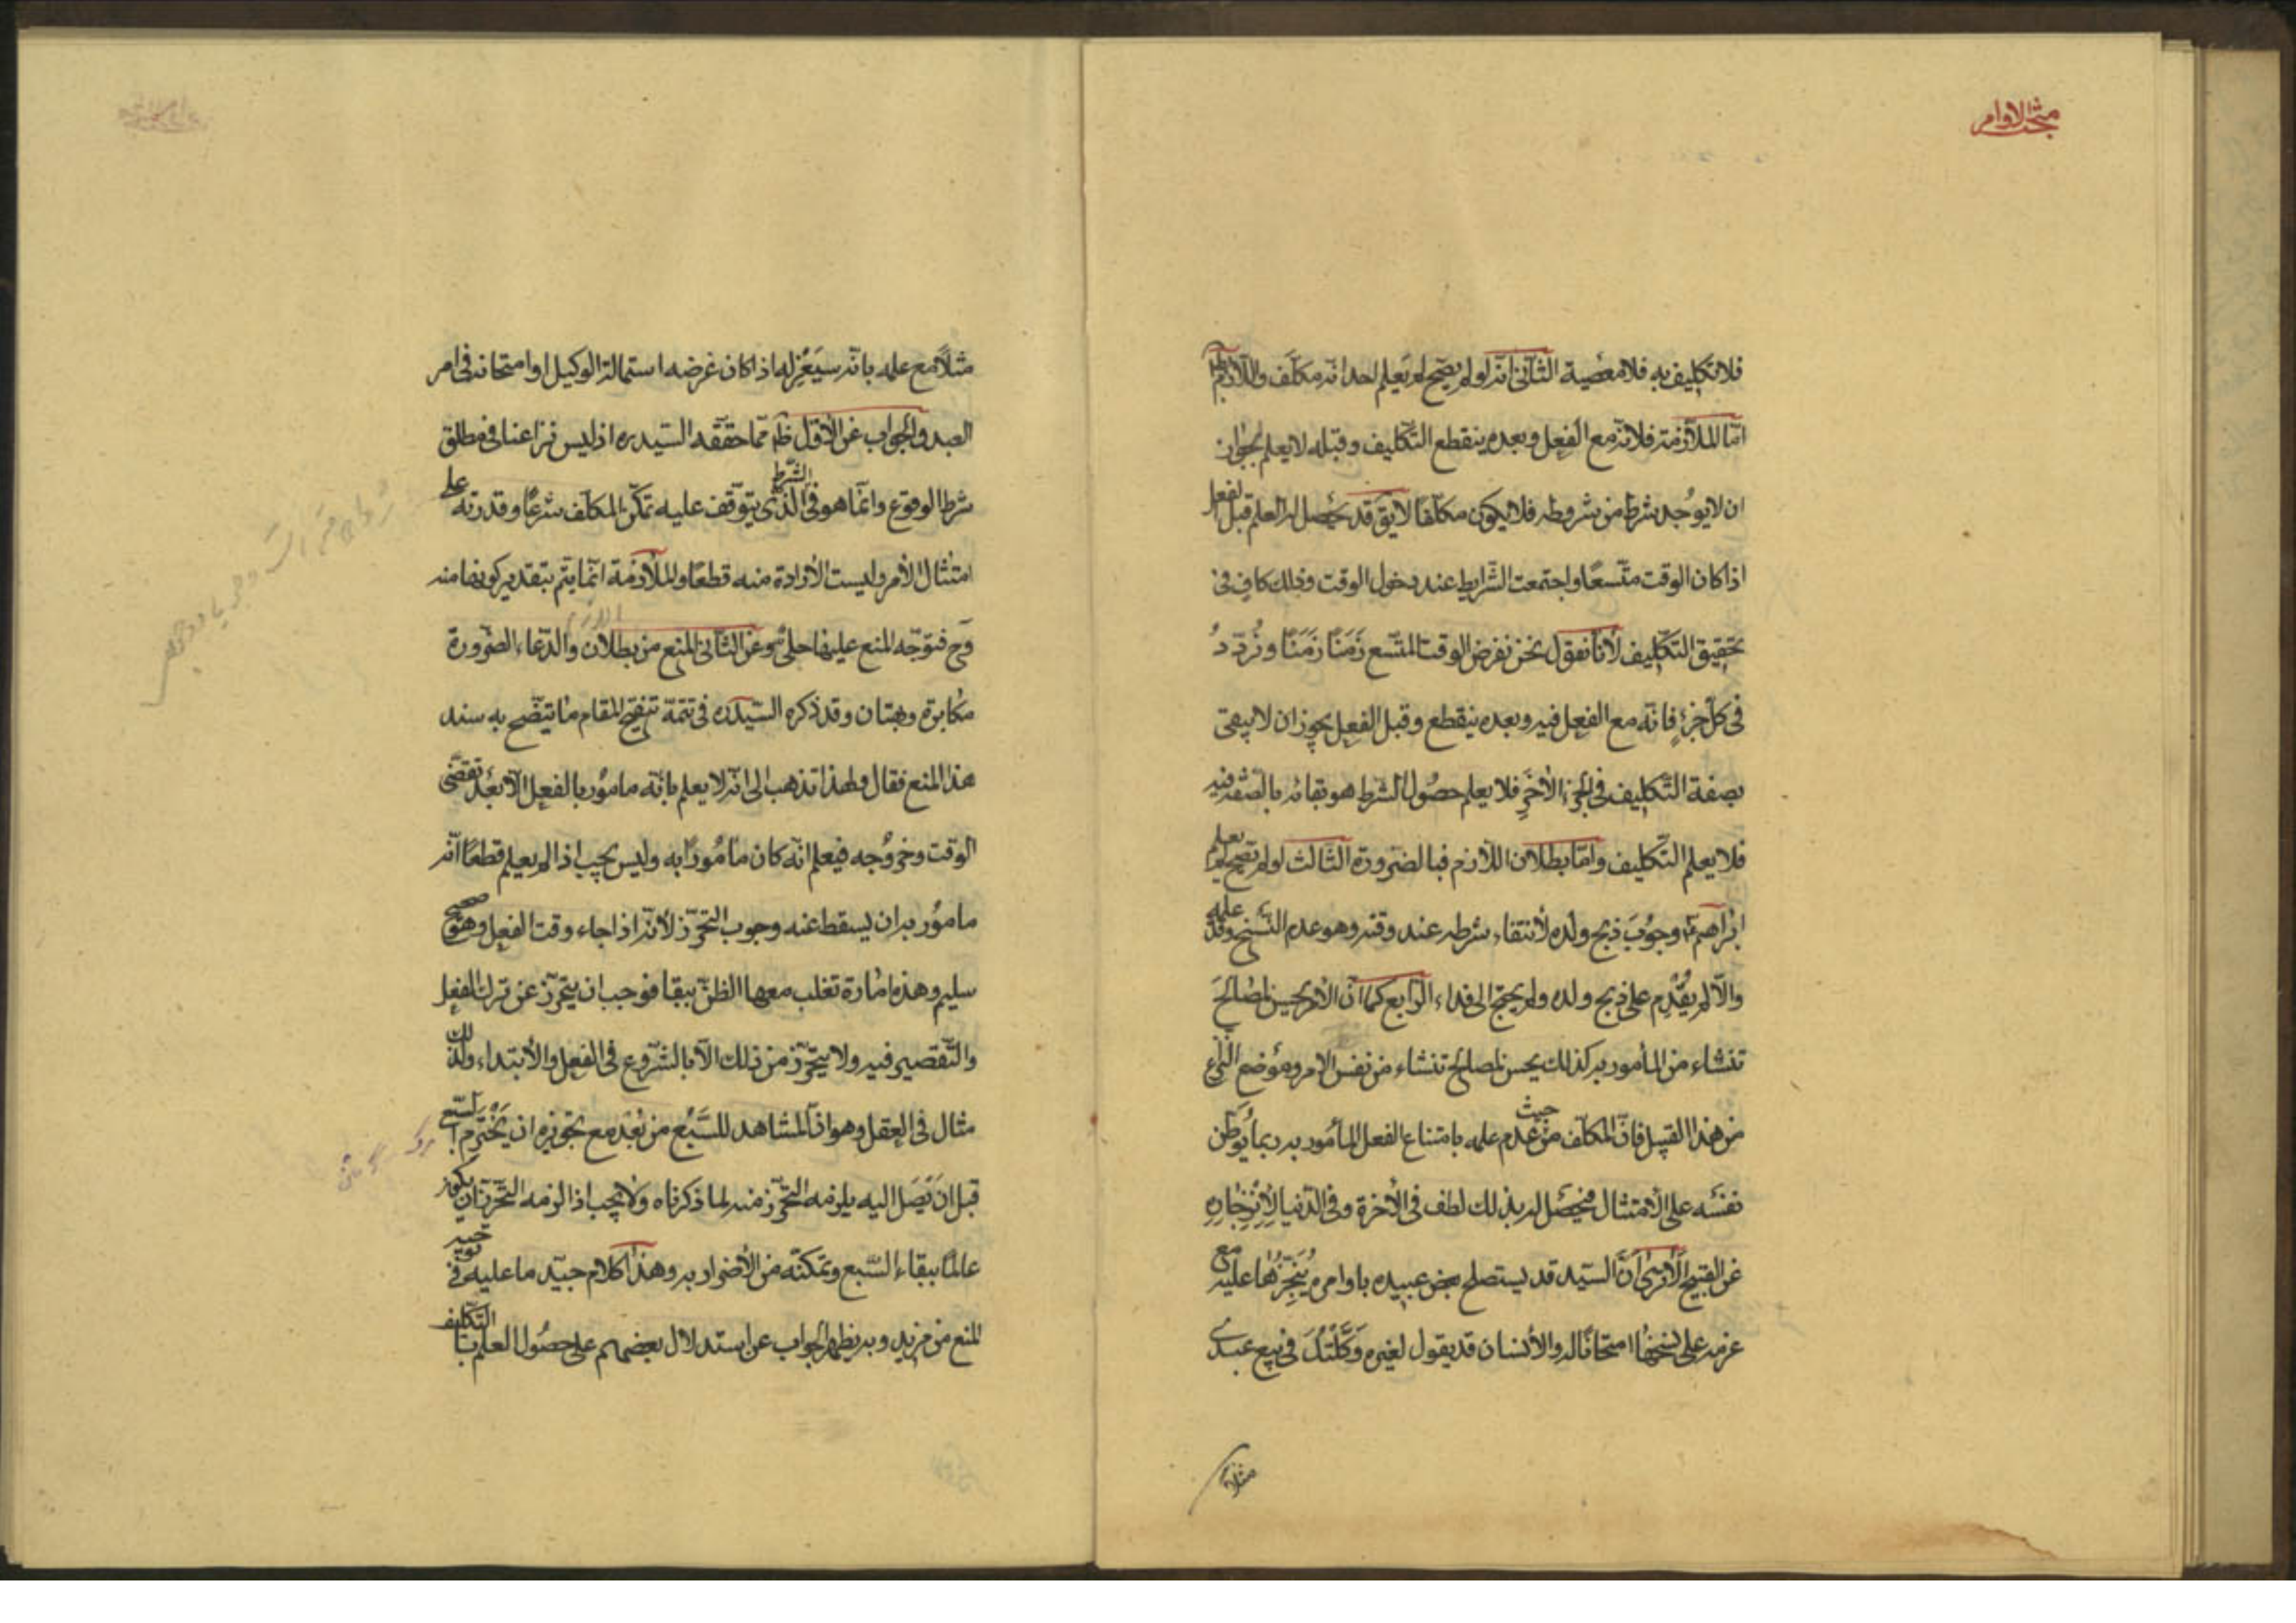 مبحث الاوامر
فلا تكليف به فلا معصية الثانى انه لو لم يصح لم يعلم احد انه مكلف واللازم بط
امّا الملازمة فلانه مع الفعل وبعده ينقطع التكليف وقبله لا يعلم لجواز
ان لا يوجد شرط من شروطه فلا يكون مكلفا لا يق قد يحصل له العلم قبل الفعل
اذا كان الوقت متسعًا واجتمعت الشرايط عند دخول الوقت وذلك كاف فى
تحقيق التكليف لأنا نقول نحن نفرض الوقت المتسع زَمَنًا زَمَنًا ونُردّدُ
فى كل جزءٍ فانه مع الفعل فيه وبعده ينقطع وقبل الفعل يجوز ان لا يبقى
بصفة التكليف فى الجزء الاخر فلا يعلم حصول الشرط هو بقائه بالصفة فيه
فلا يعلم التكليف وامّا بطلان اللازم فبالضرورة الثالث لو لم تصح لم يعلم
ابراهيم ع وجوبَ ذبح ولده لأنتفاء شرطه عند وقته وهو عدم النسخ وقد علمه
والّا لم يقدم على ذبح ولده ولم يحتج الى فداء الرابع كما انّ الأمر يحسن لمصالحَ
تنشاء من المأمور به كذلك يحسن لمصالح تنشاء من نفس الامر وموضع النزاع
من هذا القبيل فانّ المكلف من حيث عدم علمه بامتناع الفعل المأمور به ربما يوطّن
نفسَه على الأمتثال فيحصل له بذلك لطف فى الأخرة وفى الدنيا لأنزجاره
عن القبيح الا ترى أنَّ السيد قد يستصلح بعض عبيده باوامر يُنجِزُها عليه مع
عزمه على نسخها امتحانًا له والأنسان قد يقول لغيره وَكَّلْتُكَ فى بيع عبدى
مثلًا
مثلًا مع علمه بانه سيَعْزِله اذا كان غرضه استمالة الوكيل او امتحانه فى امر
العبد والجواب عن الأول ظ ممّا حققه السيد ره اذ ليس نزاعنا فى مطلق
شرط الوقوع وانّما هو فى الشرط الّذى يتوقف عليه تمكّن المكلف شرعًا وقدرته على
امتثال الأمر وليست الأرادة منه قطعًا والملازمة انّما يتم بتقدير كونها منه
وح فتوجّه المنع عليها جلىّ وعن الثانى المنع من بطلان اللازم والدّعاء الضرورة
مكابرة وبهتان وقد ذكره السيد ره فى تتمة تنقيح المقام ما يتضح به سند
هذا المنع فقال ولهذا تذهب الى انه لا يعلم بانّه مامور بالفعل الّا بعد تقضّى
الوقت وخروُجه فيعلم انّه كان مامُورًا به وليس يجب اذا لم يعلم قطعًا انّه
مامور به ان يسقط عنه وجوب التحرّز لأنه اذا جاء وقت الفعل وهو صحيح
سليم وهذه امارة تغلب معها الظن ببقا فوجب ان يتحرّز عن ترك الفعل
والتّقصير فيه ولا يتحرّز من ذلك الّا بالشروع فى الفعل والأبتداء ولذلك
مثال فى العقل وهو انّ المشاهد للسَّبُع من بُعْد مع تجويزه ان يَخْتَرِم السبع
قبل ان يَصَل اليه يلزمه التحرّز منه لما ذكرناه ولا يجب اذا لزمه التحرّز ان يكون
عالمًا ببقاء السّبع وتمكنه من الأضرار به وهذا كلام جيّد ما عليه فى توجيه
المنع من مزيد وبه يظهر الجواب عن استدلال بعضهم على حصُول العلم بالتكليف